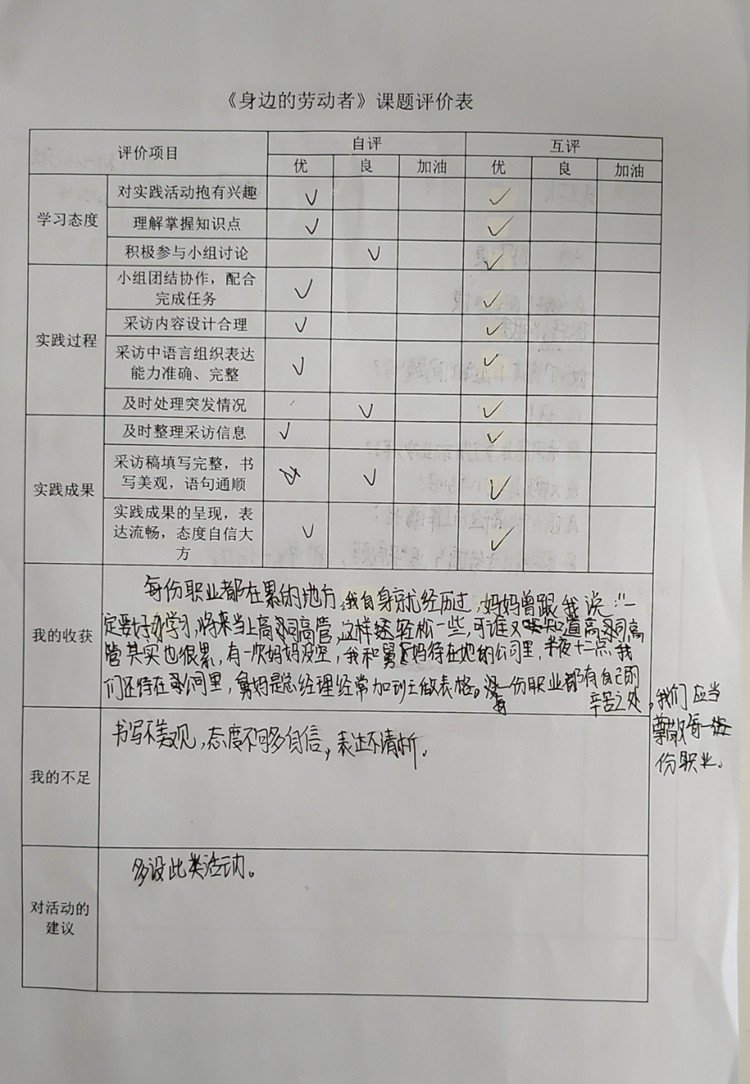 《身边的劳动者》课题评价表
评价项目 自评 互评
优 良 加油 优 良 加油
学习态度
对实践活动抱有兴趣 ✓ ✓
理解掌握知识点 ✓ ✓
积极参与小组讨论 ✓ ✓
实践过程
小组团结协作，配合
完成任务 ✓ ✓
采访内容设计合理 ✓ ✓
采访中语言组织表达
能力准确、完整 ✓ ✓
及时处理突发情况 ✓ ✓
实践成果
及时整理采访信息 ✓ ✓
采访稿填写完整，书
写美观，语句通顺 ✓ ✓
实践成果的呈现，表
达流畅，态度自信大
方 ✓ ✓
我的收获
每份职业都在累的地方，我自身就经历过，妈妈曾跟我说："一
定要好好学习，将来当上高司高管，这样轻松一些，可谁又知道高司高
管其实也很累，有一次妈妈没空，我和舅妈待在她的公司里，半夜十二点，我
们还待在公司里，舅妈是总经理经常加班做表格。每一份职业都有自己的
辛苦之处，我们应当
尊敬每一
份职业。
我的不足
书写不美观，态度不够多自信，表达不清晰。
对活动的
建议
多设此类活动。